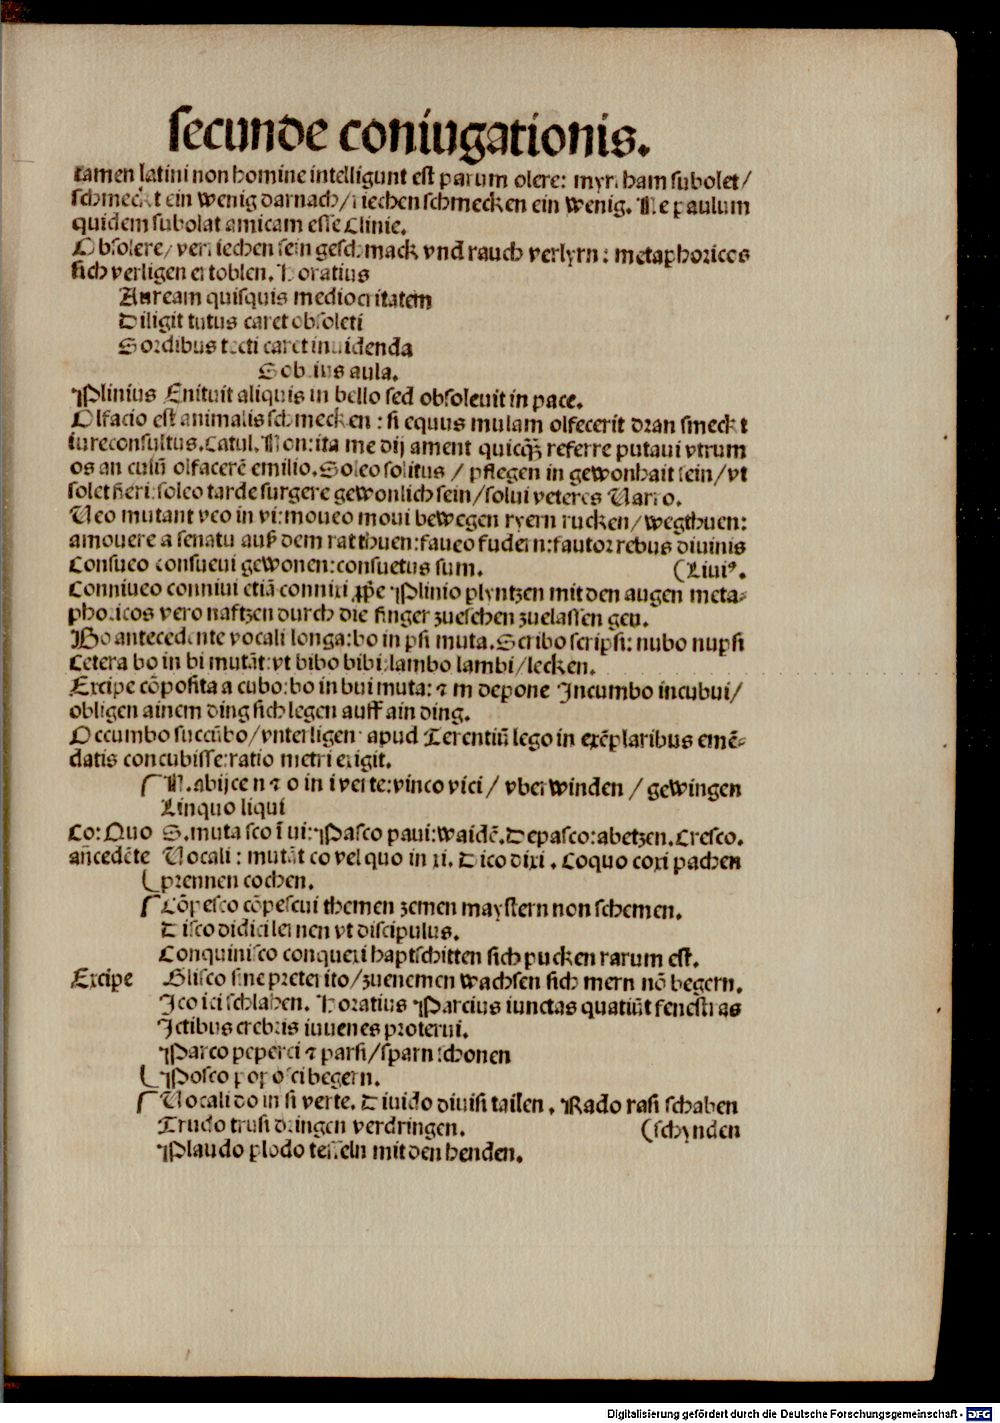 secunde coniugationis.
tamen latini non homine intelligunt est parum olere: myrrham subolet/
schmeckt ein wenig darnach/riechen schmecken ein wenig. Ne paulum
quidem subolat amicam esse Clinie.
Obsolere/verriechen sein geschmack vnd rauch verlyrn: metaphoricos
sich verligen ertoblen. Horatius
Auream quisquis mediocritatem
Diligit tutus caret obsoleti
Sordibus tecti caret inuidenda
Sobrius aula.
Plinius Enituit aliquis in bello sed obsoleuit in pace.
Olfacio est animalis schmecken: si equus mulam olfecerit dran smeckt
iureconsultus. Catul. Non:ita me dij ament quicq̃ȝ referre putaui vtrum
os an culũ olfacerẽ emilio. Soleo solitus / pflegen in gewonhait sein/vt
solet fieri:soleo tarde surgere gewonlich sein/solui veteres Varro.
Veo mutant veo in vi:moueo moui bewegen ryern rucken/wegthuen:
amouere a senatu auß dem rat thuen:faueo fudern:fautor rebus diuinis
Consueo consueui gewonen:consuetus sum. (Liuiꝰ.
Conniueo conniui etiã connixi ꝓp̃e Plinio plyntzen mit den augen meta-
phoricos vero naftzen durch die finger zuesehen zuelassen geu.
Bo antecedente vocali longa:bo in psi muta. Scribo scripsi: nubo nupsi
Cetera bo in bi mutãt:vt bibo bibi:lambo lambi/lecken.
Excipe cõposita a cubo:bo in bui muta: ⁊ m depone Incumbo incubui/
obligen ainem ding sich legen auff ain ding.
Occumbo succũbo/vnterligen apud Terentiũ lego in exẽplaribus emẽ-
datis concubisse:ratio metri exigit.
N. abijce n ⁊ o in i verte:vinco vici / vberwinden / gewingen
Linquo liqui
Co: Quo S. muta sco ĩ ui: Pasco paui:waidẽ. Depasco:abetzen. Cresco.
añcedẽte Vocali: mutãt co vel quo in xi. Dico dixi. Coquo coxi pachen
prennen cochen.
Cõpesco cõpescui themen zemen maystern non schemen.
Disco didici lernen vt discipulus.
Conquinisco conquexi haptschitten sich pucken rarum est.
Excipe Glisco sine preterito/zuenemen wachsen sich mern nõ begern.
Ico ici schlahen. Horatius Parcius iunctas quatiũt fenestras
Ictibus crebris iuuenes proterui.
Parco peperci ⁊ parsi/sparn schonen
Posco poposci begern.
Vocali do in si verte. Diuido diuisi tailen. Rado rasi schaben
Trudo trusi dringen verdringen. (schynden
Plaudo plodo tesseln mit den henden.
Digitalisierung gefördert durch die Deutsche Forschungsgemeinschaft - DFG